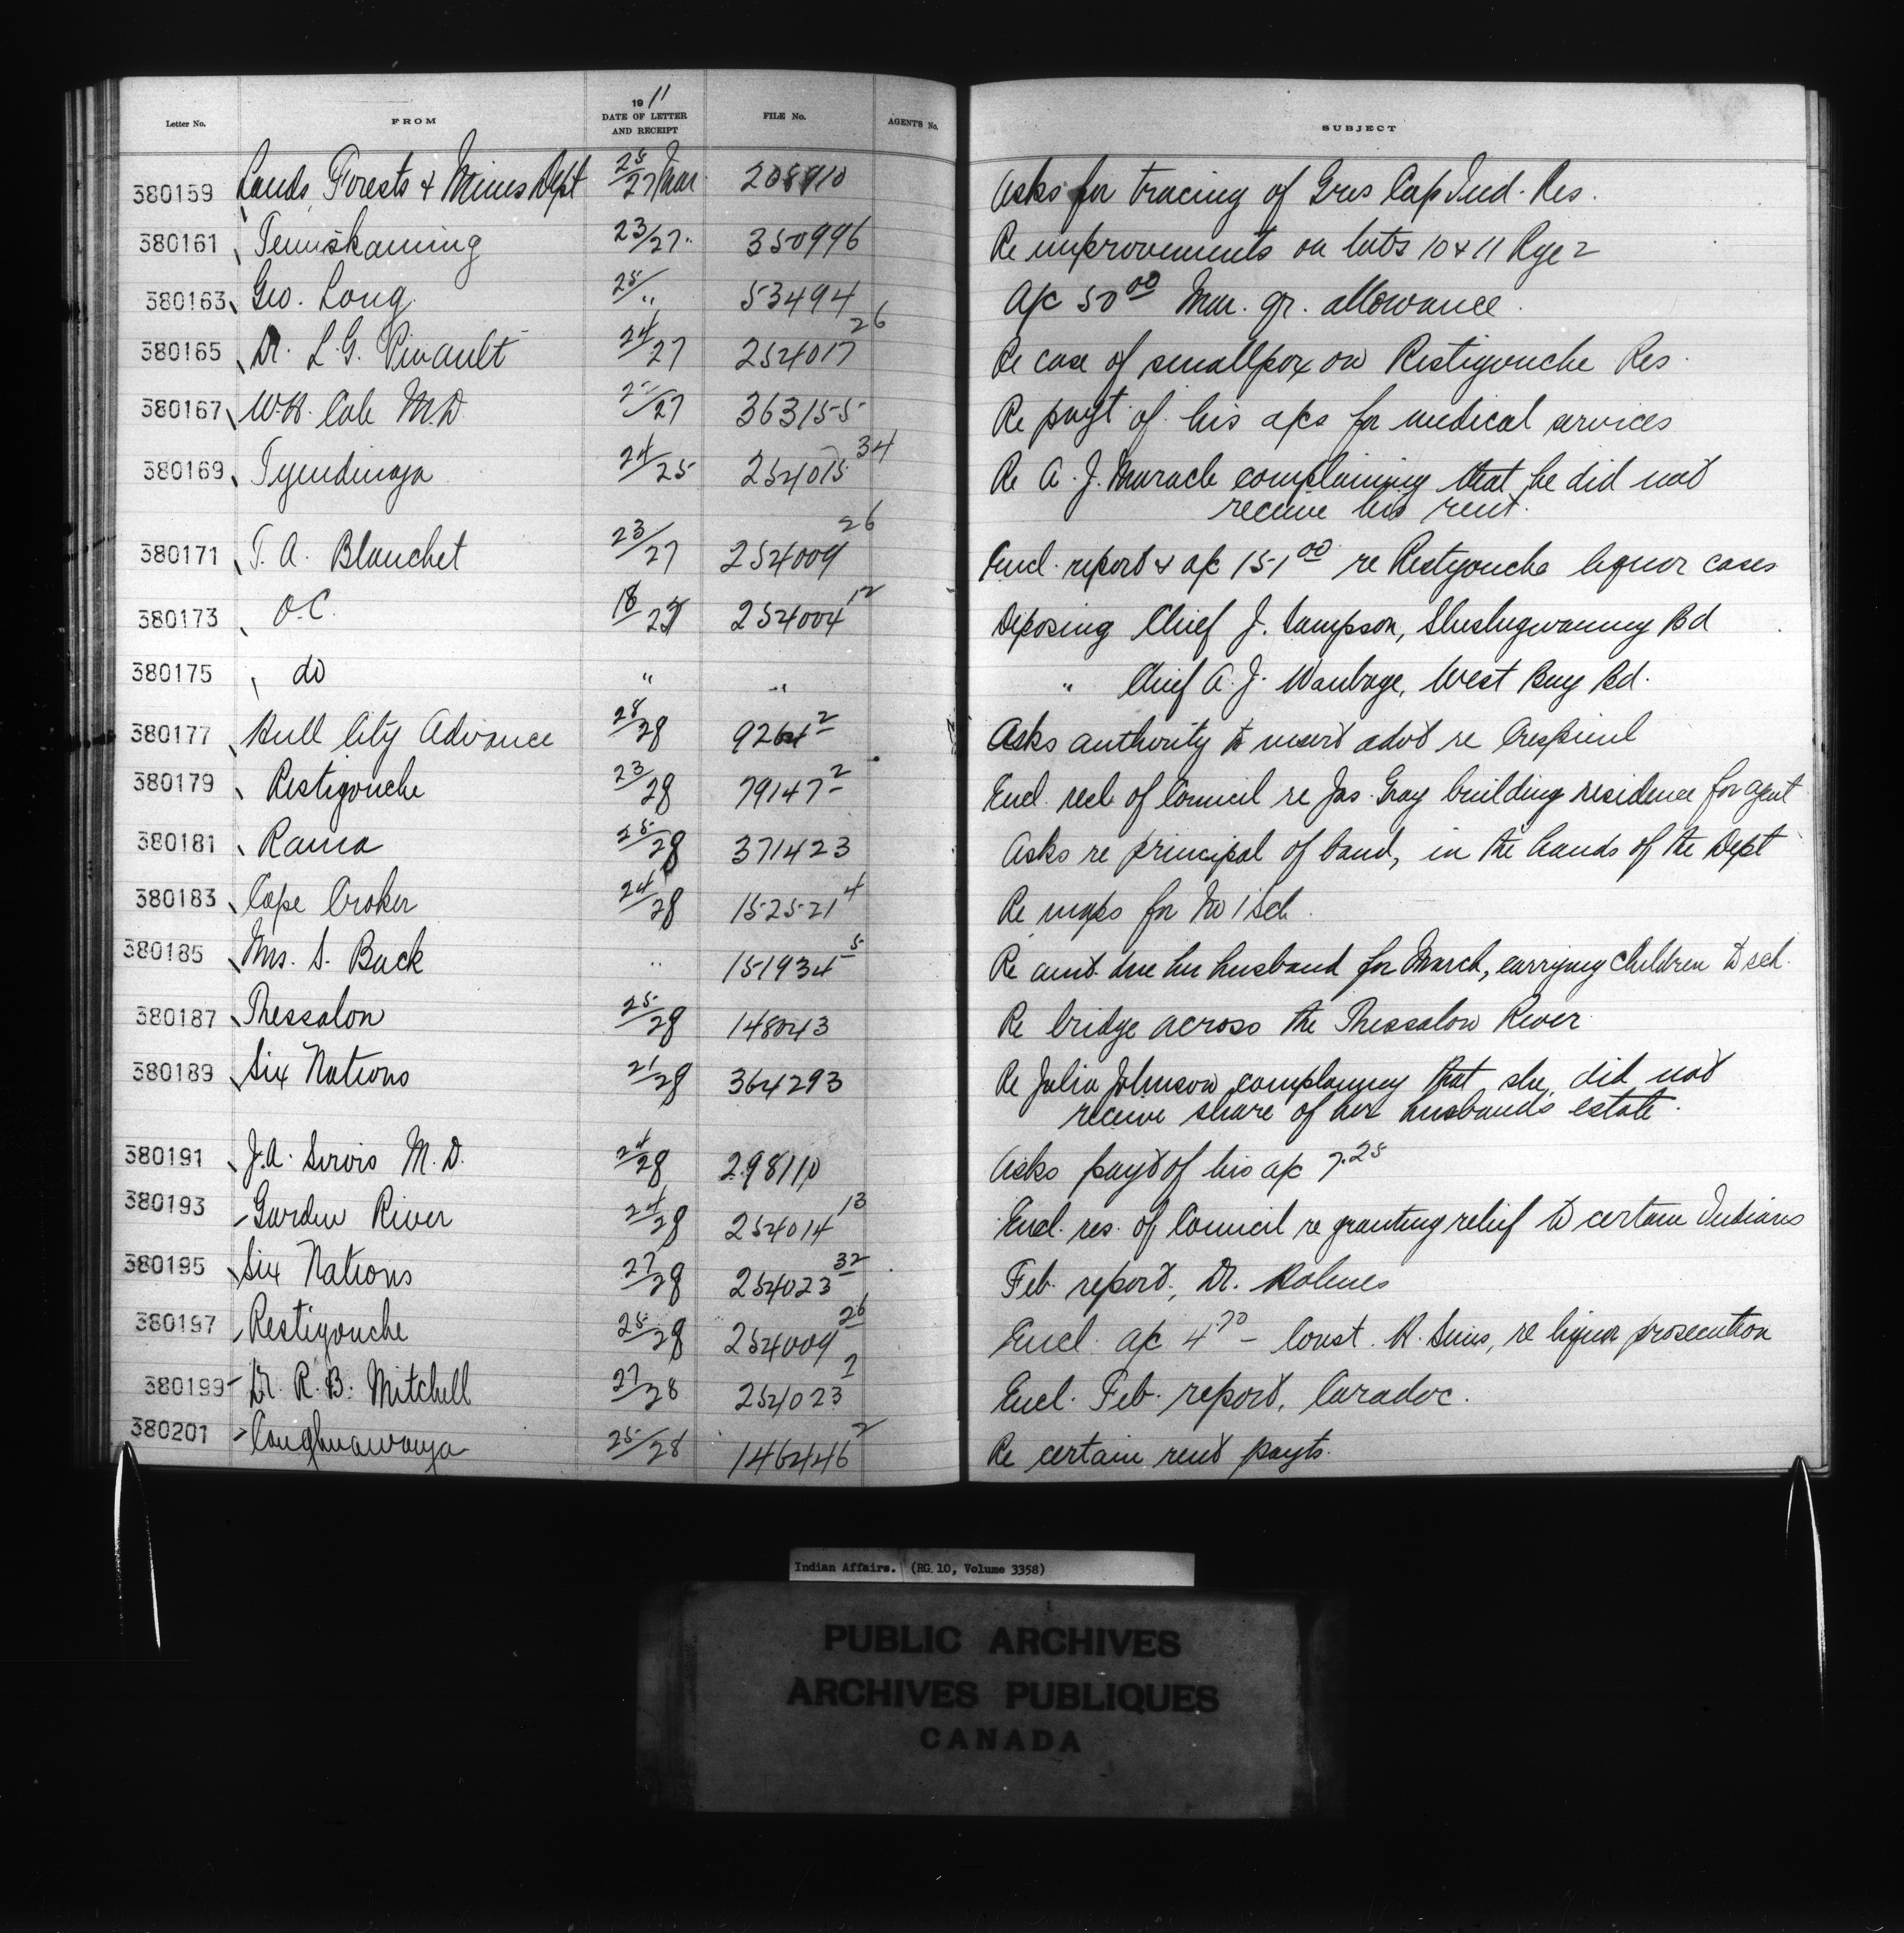 Letter No. FROM 1911 DATE OF LETTER AND RECEIPT FILE No. AGENT'S No. SUBJECT
380159 Lands, Forests & Mines Dept 25/27 Mar. 208910 Asks for tracing of Gros Cap Ind. Res.
380161 Temiskaming 23/27. 350996 Re improvements on lots 10 & 11 Rge 2
380163 Geo. Long 25/" 53494 A/c 50.00 Mar. qr. allowance.
380165 Dr. L.G. Pinault 24/27 254017 26 Re case of smallpox on Restigouche Res.
380167 W.H. Cale M.D. /27 363155 Re payt of his a/cs for medical services
380169 Tyendinaga 24/25 254015 34 Re A. J. Maracle complaining that he did not
receive his rent.
380171 T. A. Blanchet 23/27 254009 26 Encl. report & a/c 151.00 re Restigouche liquor cases
380173 O.C. 18/27 254004 12 Deposing Chief J. Sampson, Sheshegwaning Bd
380175 do " " " Chief A. J. Wanbage, West Bay Bd.
380177 Hull City Advance 28/28 9264 2 Asks authority to insert advt re
380179 Restigouche 23/28 79147 2 Encl. recl of Council re Jas. Gray building residence for agent
380181 Rama 25/28 371423 Asks re principal of band, in the hands of the Dept
380183 Cape Croker 24/28 152521 4 Re maps for No 1 Sch.
380185 Mrs. S. Buck " 151934 5 Re amt due her husband for March, carrying children to sch.
380187 Thessalon 25/28 148043 Re bridge across the Thessalon River
380189 Six Nations 21/28 364293 Re Julia Johnson complaining that she did not
receive share of her husband's estate.
380191 J.A. Servis M.D. 24/28 298110 Asks payt of his a/c 7.25
380193 Garden River 24/28 254014 13 Encl. res. of Council re granting relief to certain Indians
380195 Six Nations 27/28 254023 32 Feb. report, Dr. Holmes
380197 Restigouche 25/28 254009 26 Encl. a/c 4.70 – Const. H. Sims, re liquor prosecution
380199 Dr. R.B. Mitchell 27/28 254023 2 Encl. Feb. report, Caradoc.
380201 Caughnawaga 25/28 146446 2 Re certain rent payts.
Indian Affairs. (RG 10, Volume 3358)
PUBLIC ARCHIVES
ARCHIVES PUBLIQUES
CANADA